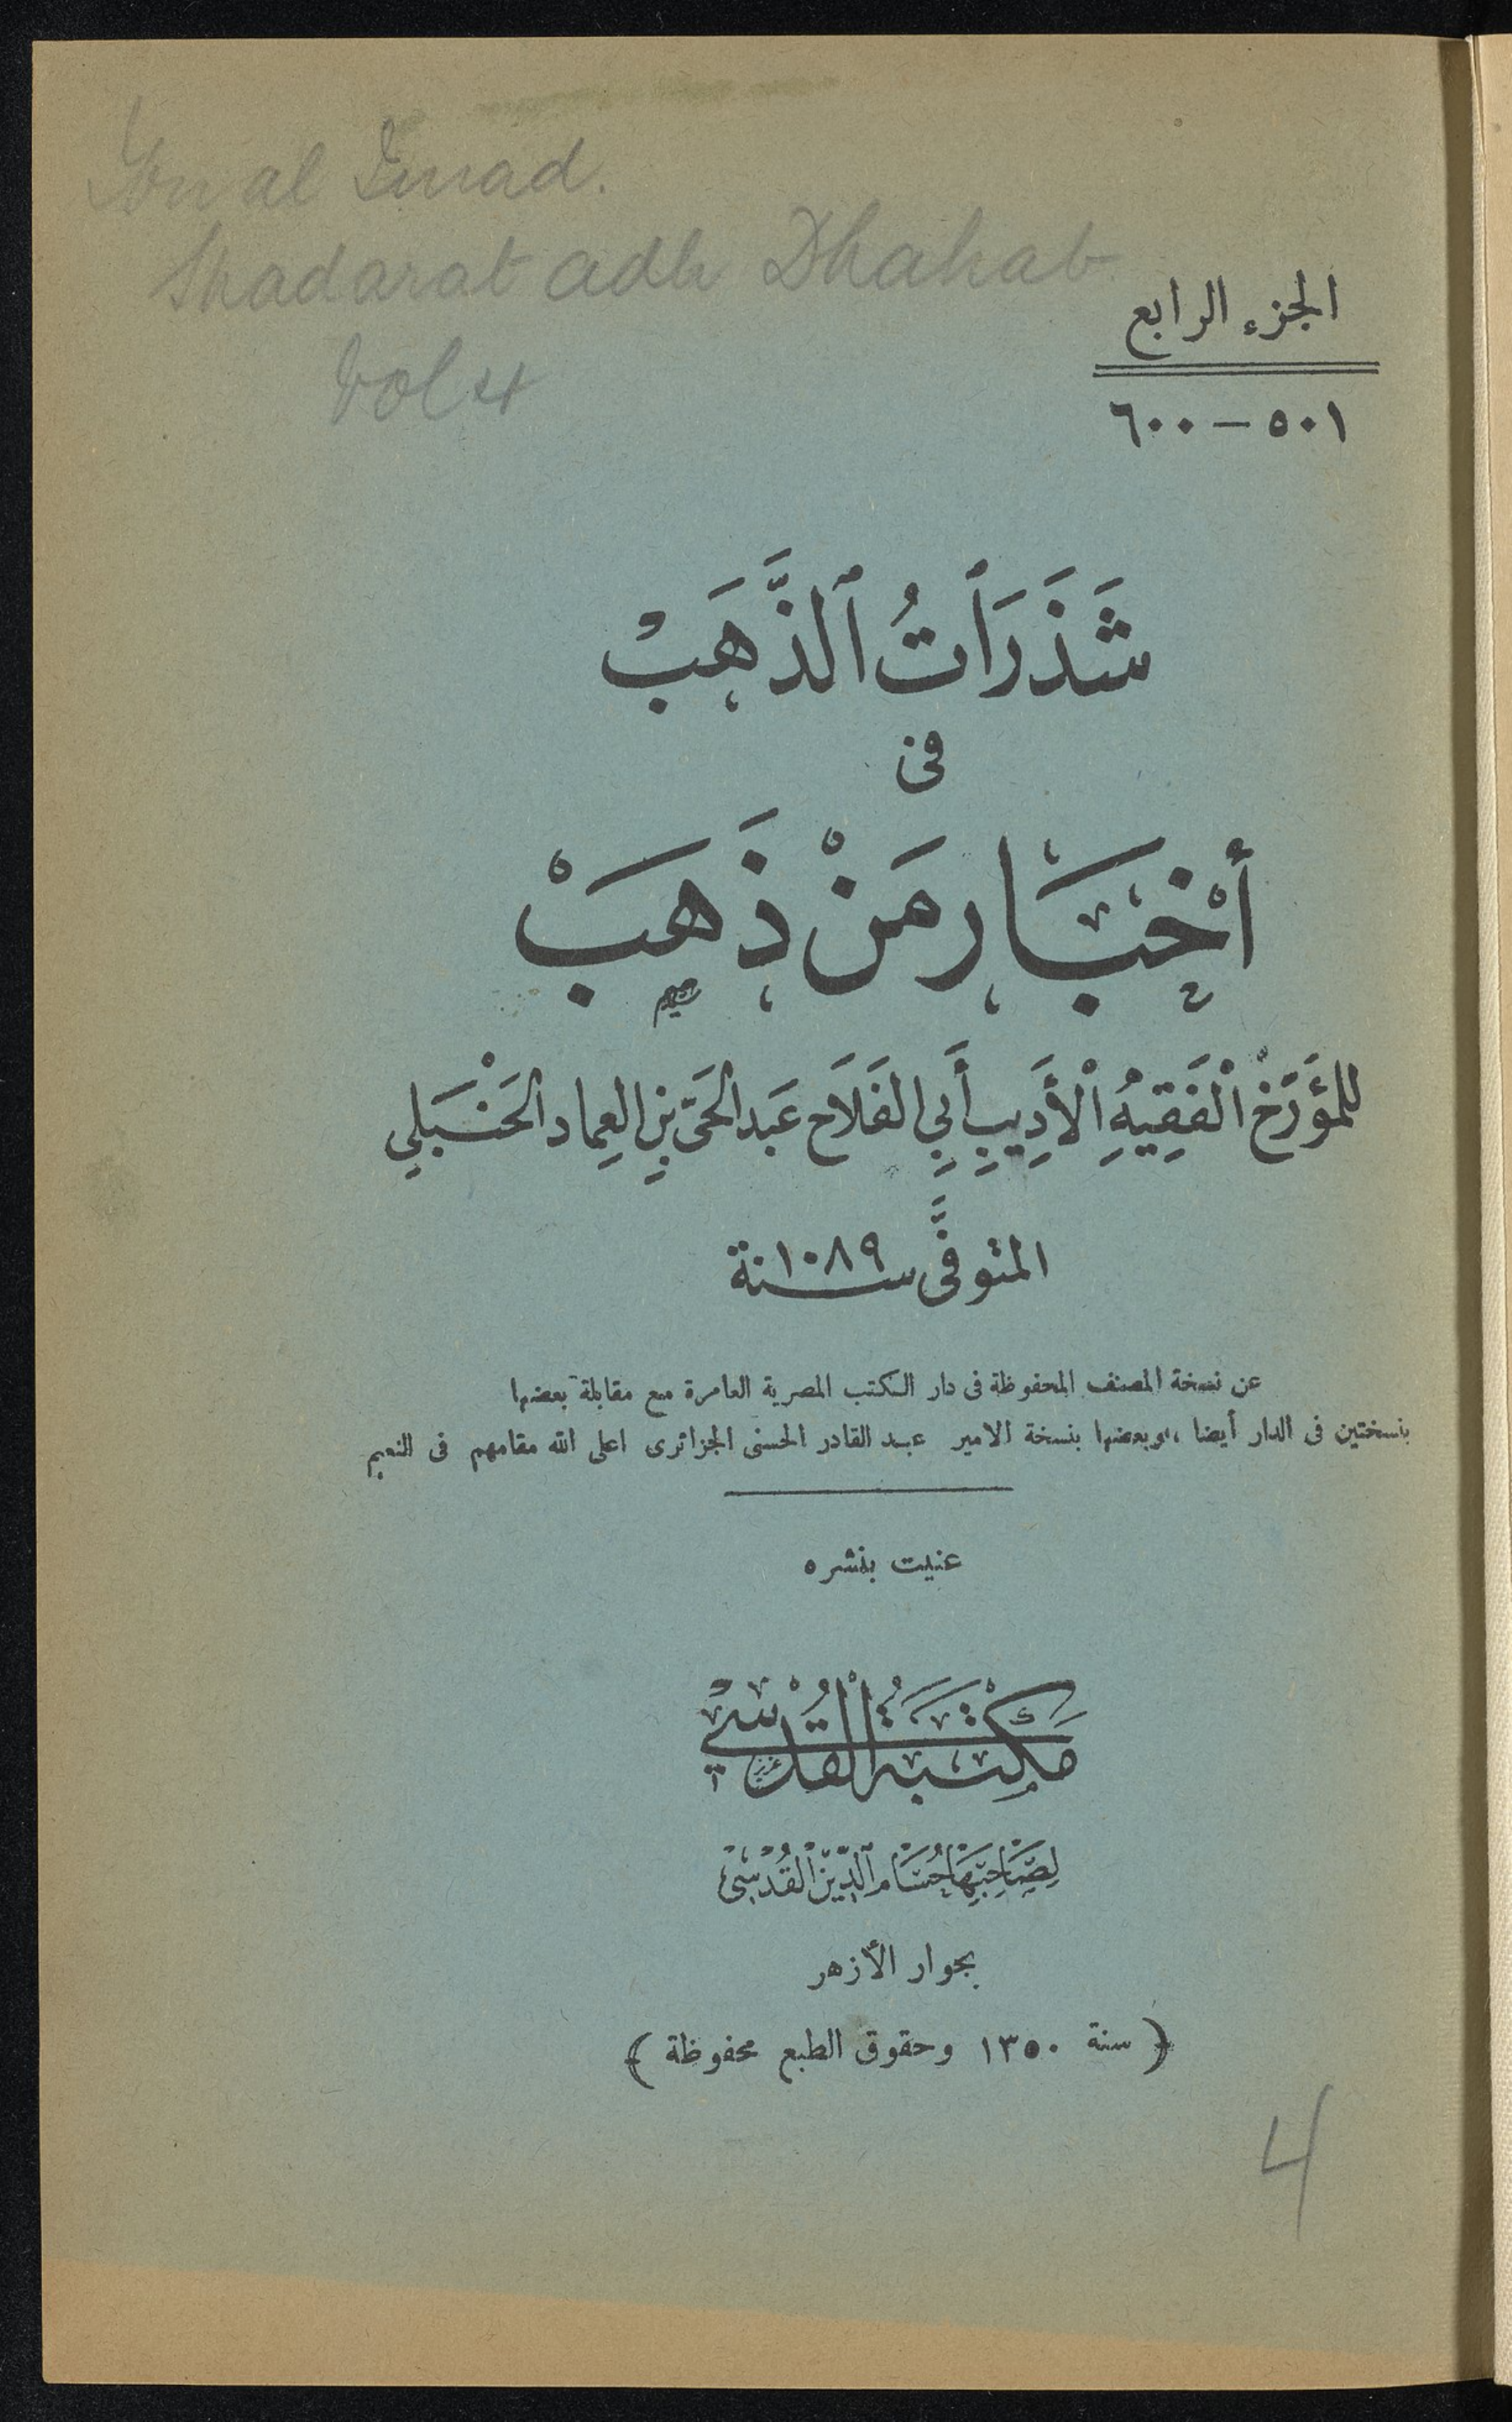 Ibn al Imad.
Shadarat adh Dhahab
Vol 4
الجزء الرابع
٥٠١ — ٦٠٠
شَذَرَاتُ ٱلذَّهَبْ
فى
أَخْبَار مَنْ ذَهَبْ
للمؤَرّخ الْفَقِيهِ الْأَدِيبِ أَبِي الفَلَاح عَبد الحَىّ بنِ العِماد الحَنْبَلِي
المتوفَّى سنة ١٠٨٩
عن نسخة المصنف المحفوظة فى دار الكتب المصرية العامرة مع مقابلة بعضها
بنسختين فى الدار أيضا ، وبعضها بنسخة الامير عبد القادر الحسنى الجزائرى اعلى الله مقامهم فى النعيم
عنيت بنشره
مَكْتَبَةُ الْقُدْسِي
لِصَاحِبِهَا حُسَام ٱلدِّيْن الْقُدْسِىْ
بجوار الأزهر
﴿ سنة ١٣٥٠ وحقوق الطبع محفوظة ﴾
4